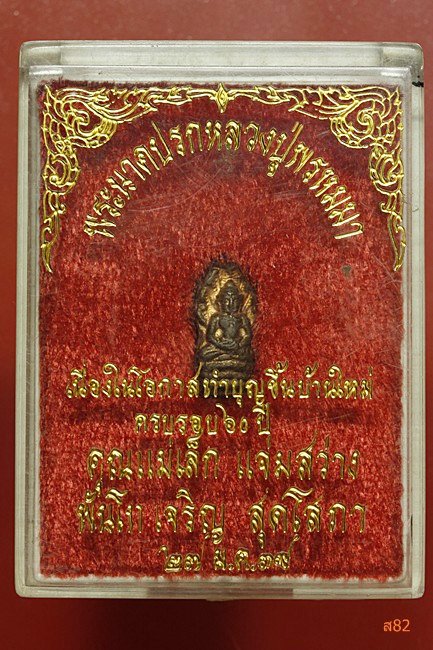 พระนาคปรกหลวงปู่พรหมมา
เนื่องในโอกาสทำบุญขึ้นบ้านใหม่
ครบรอบ๖๐ ปี
คุณแม่เล็ก แจ่มสว่าง
พันโท เจริญ สุดโสภา
๒๗ มี.ค.๓๗
ส82